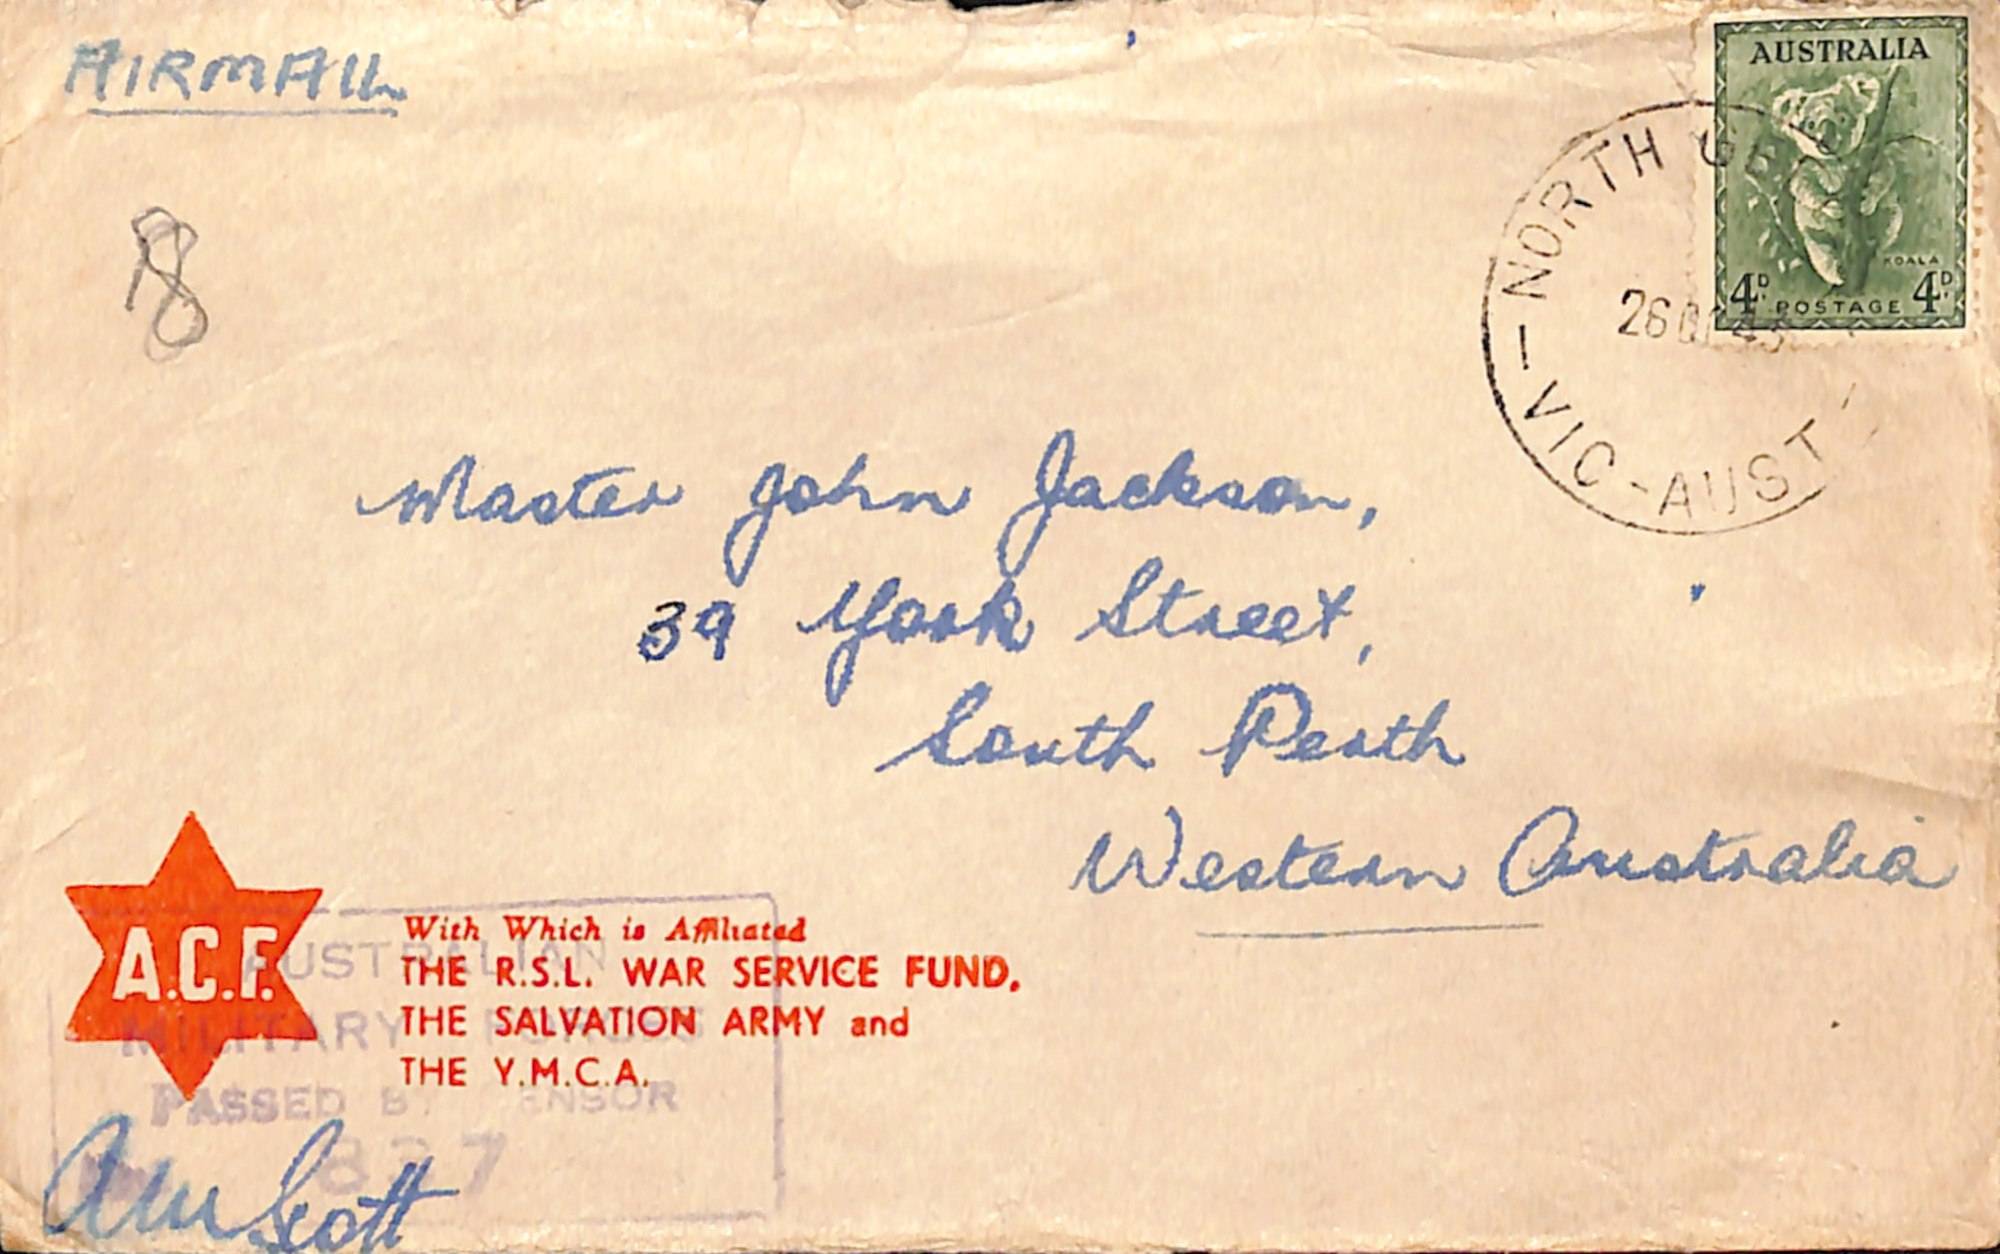 AIRMAIL
8
AUSTRALIA
KOALA
4D POSTAGE 4D
NORTH
26 43
VIC-AUST
Master John Jackson,
39 York Street,
South Perth
Western Australia
A.C.F.
With Which is Affiliated
THE R.S.L. WAR SERVICE FUND,
THE SALVATION ARMY and
THE Y.M.C.A.
AUSTRALIAN
MILITARY FORCES
PASSED BY CENSOR
Scott